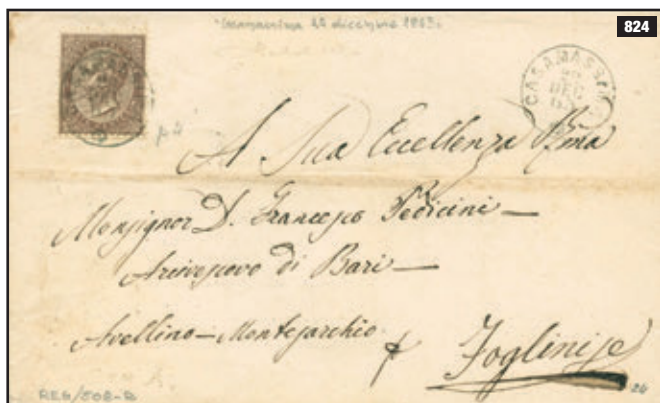 824
dicembre 1863
CASAMASSIMA
DEC
63
A Sua Eccellenza Rma
Monsignor D. Francesco Pedicini —
Arcivescovo di Bari —
Avellino — Montesarchio
Foglinise
26
REG/508-R